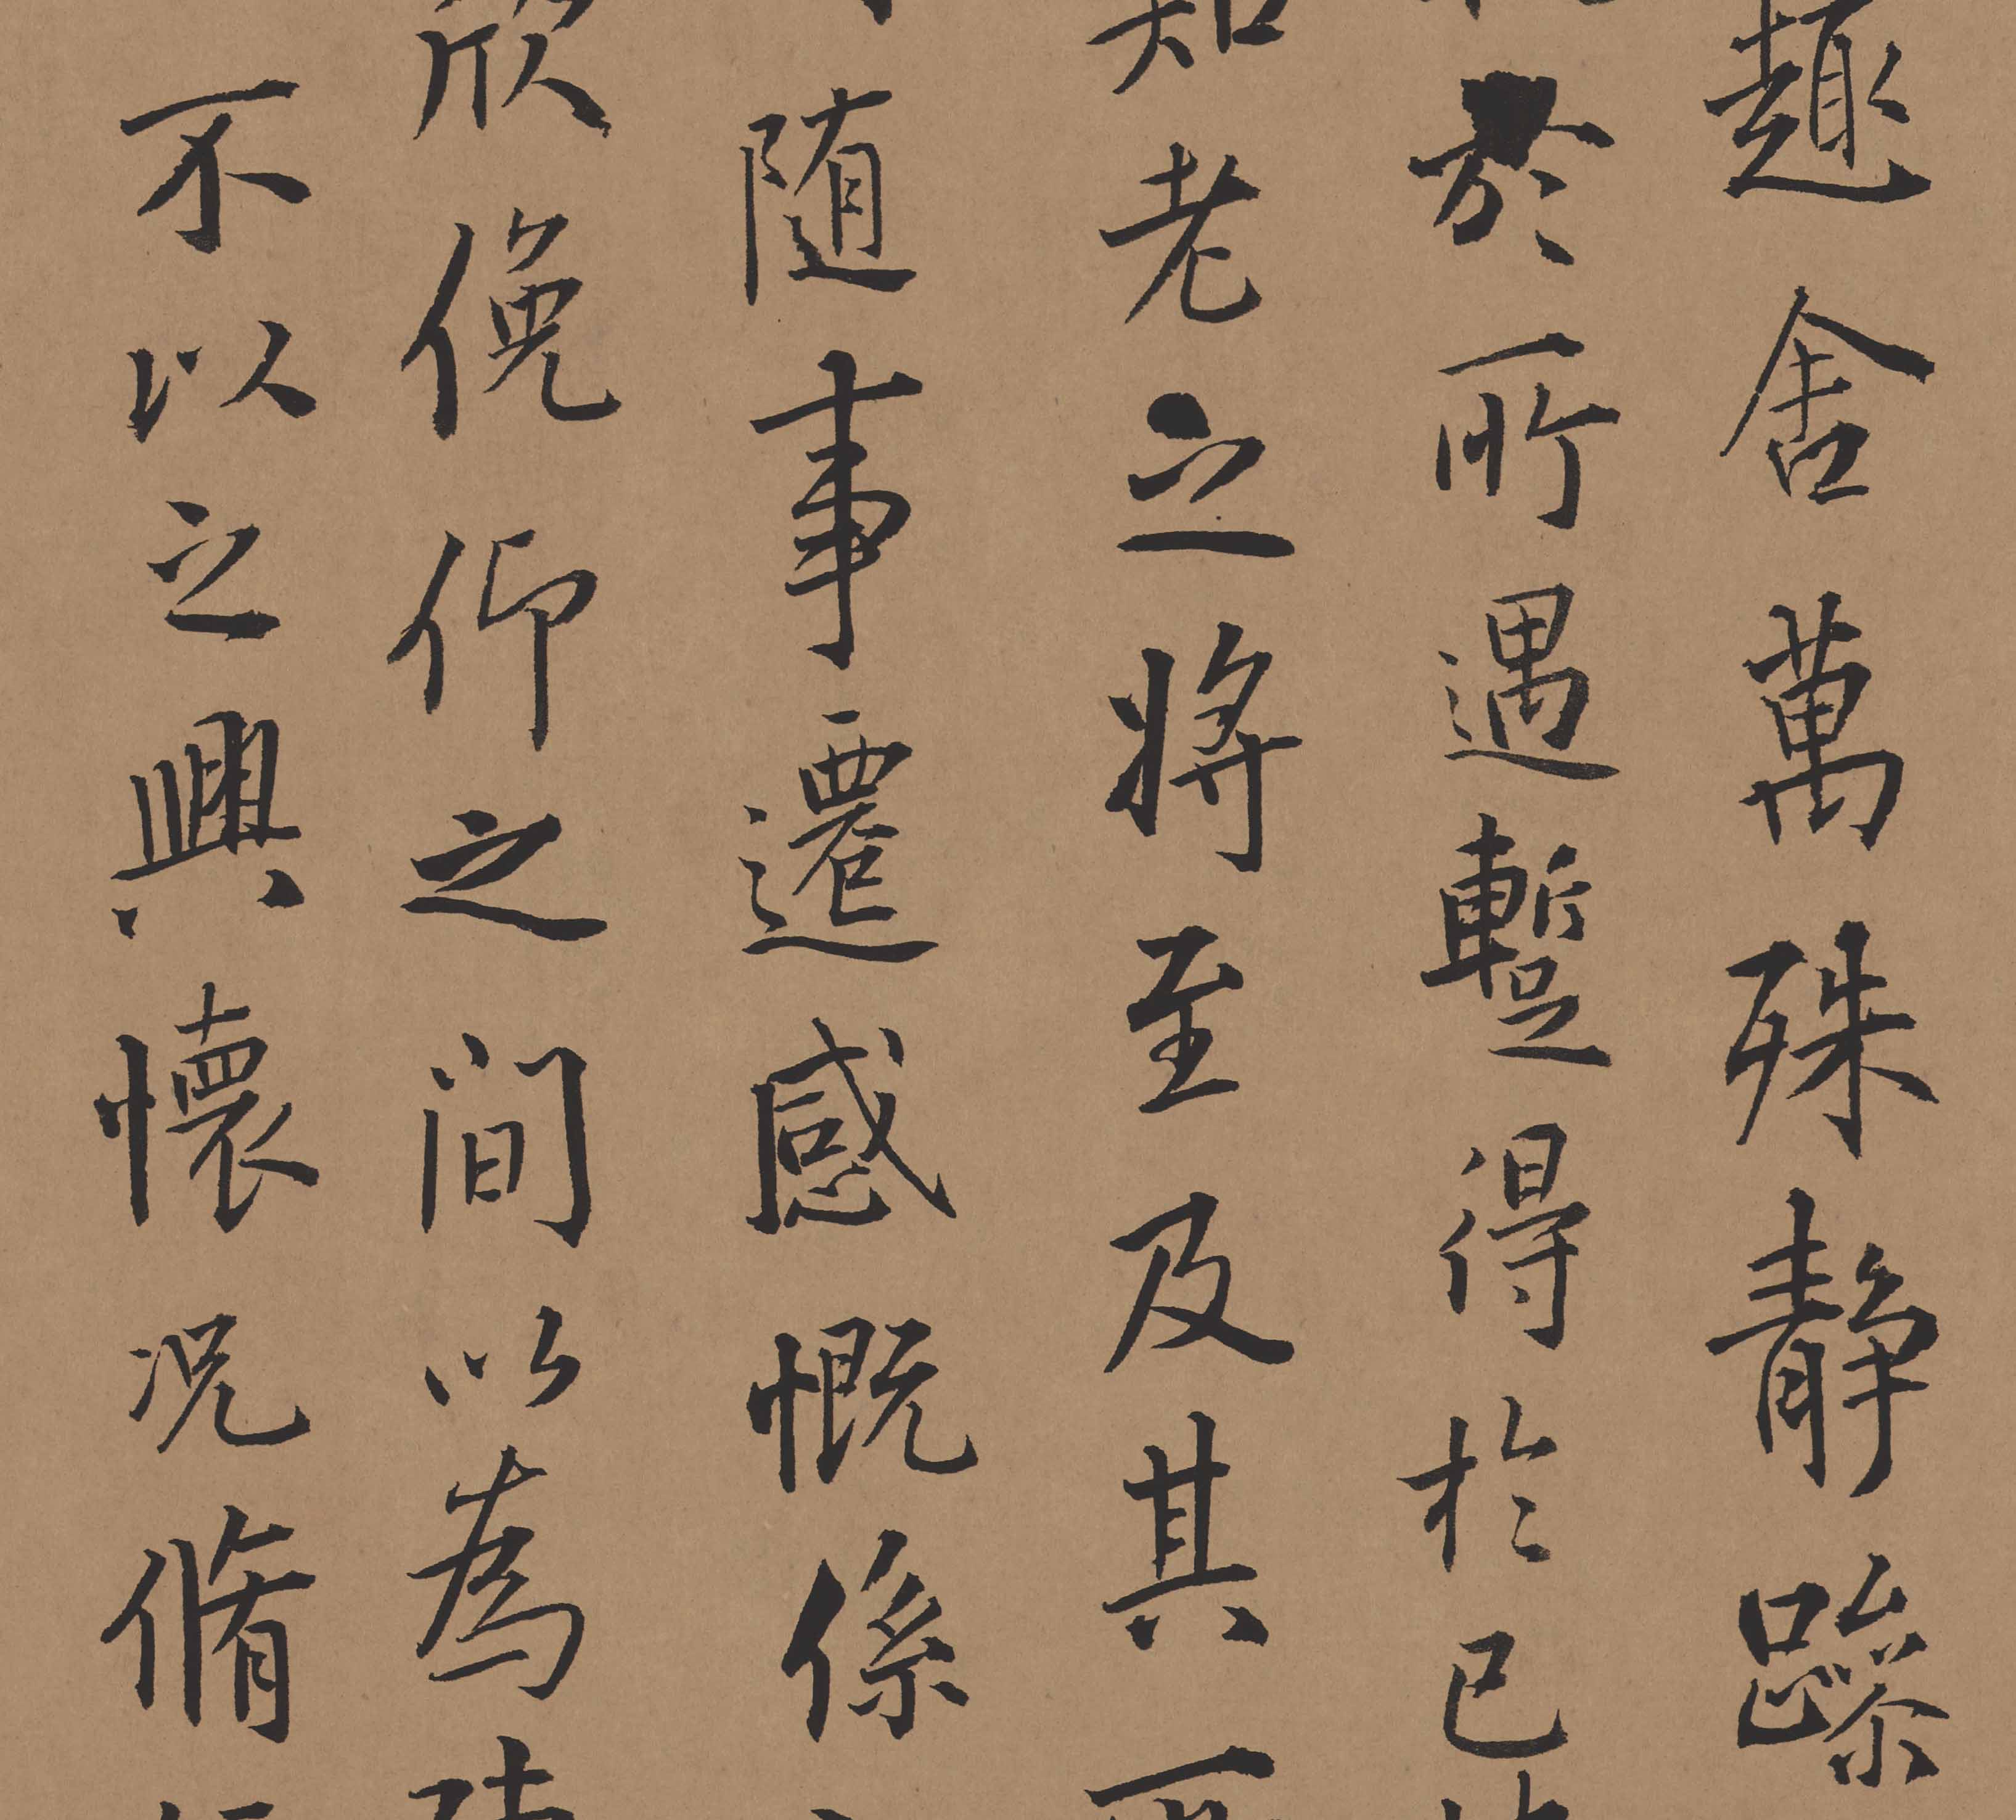 趣舍萬殊静躁
於所遇暫得於己
知老之将至及其所
随事遷感慨係
欣俛仰之間以為陳
不以之興懷況脩